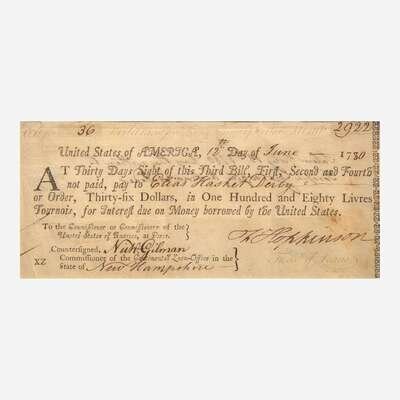 36 2922
United States of AMERICA, 12th Day of June 1780
AT Thirty Days Sight of this Third Bill, First, Second and Fourth
not paid, pay to Elias Hasket Derby
or Order, Thirty-six Dollars, in One Hundred and Eighty Livres
Tournois, for Interest due on Money borrowed by the United States.
To the Commissioner or Commissioners of the
United States of America, at Paris.
Fs Hopkinson
Countersigned, Nichs Gilman
XZ Commissioner of the Continental Loan-Office in the
State of New Hampshire
Treasr of Loans